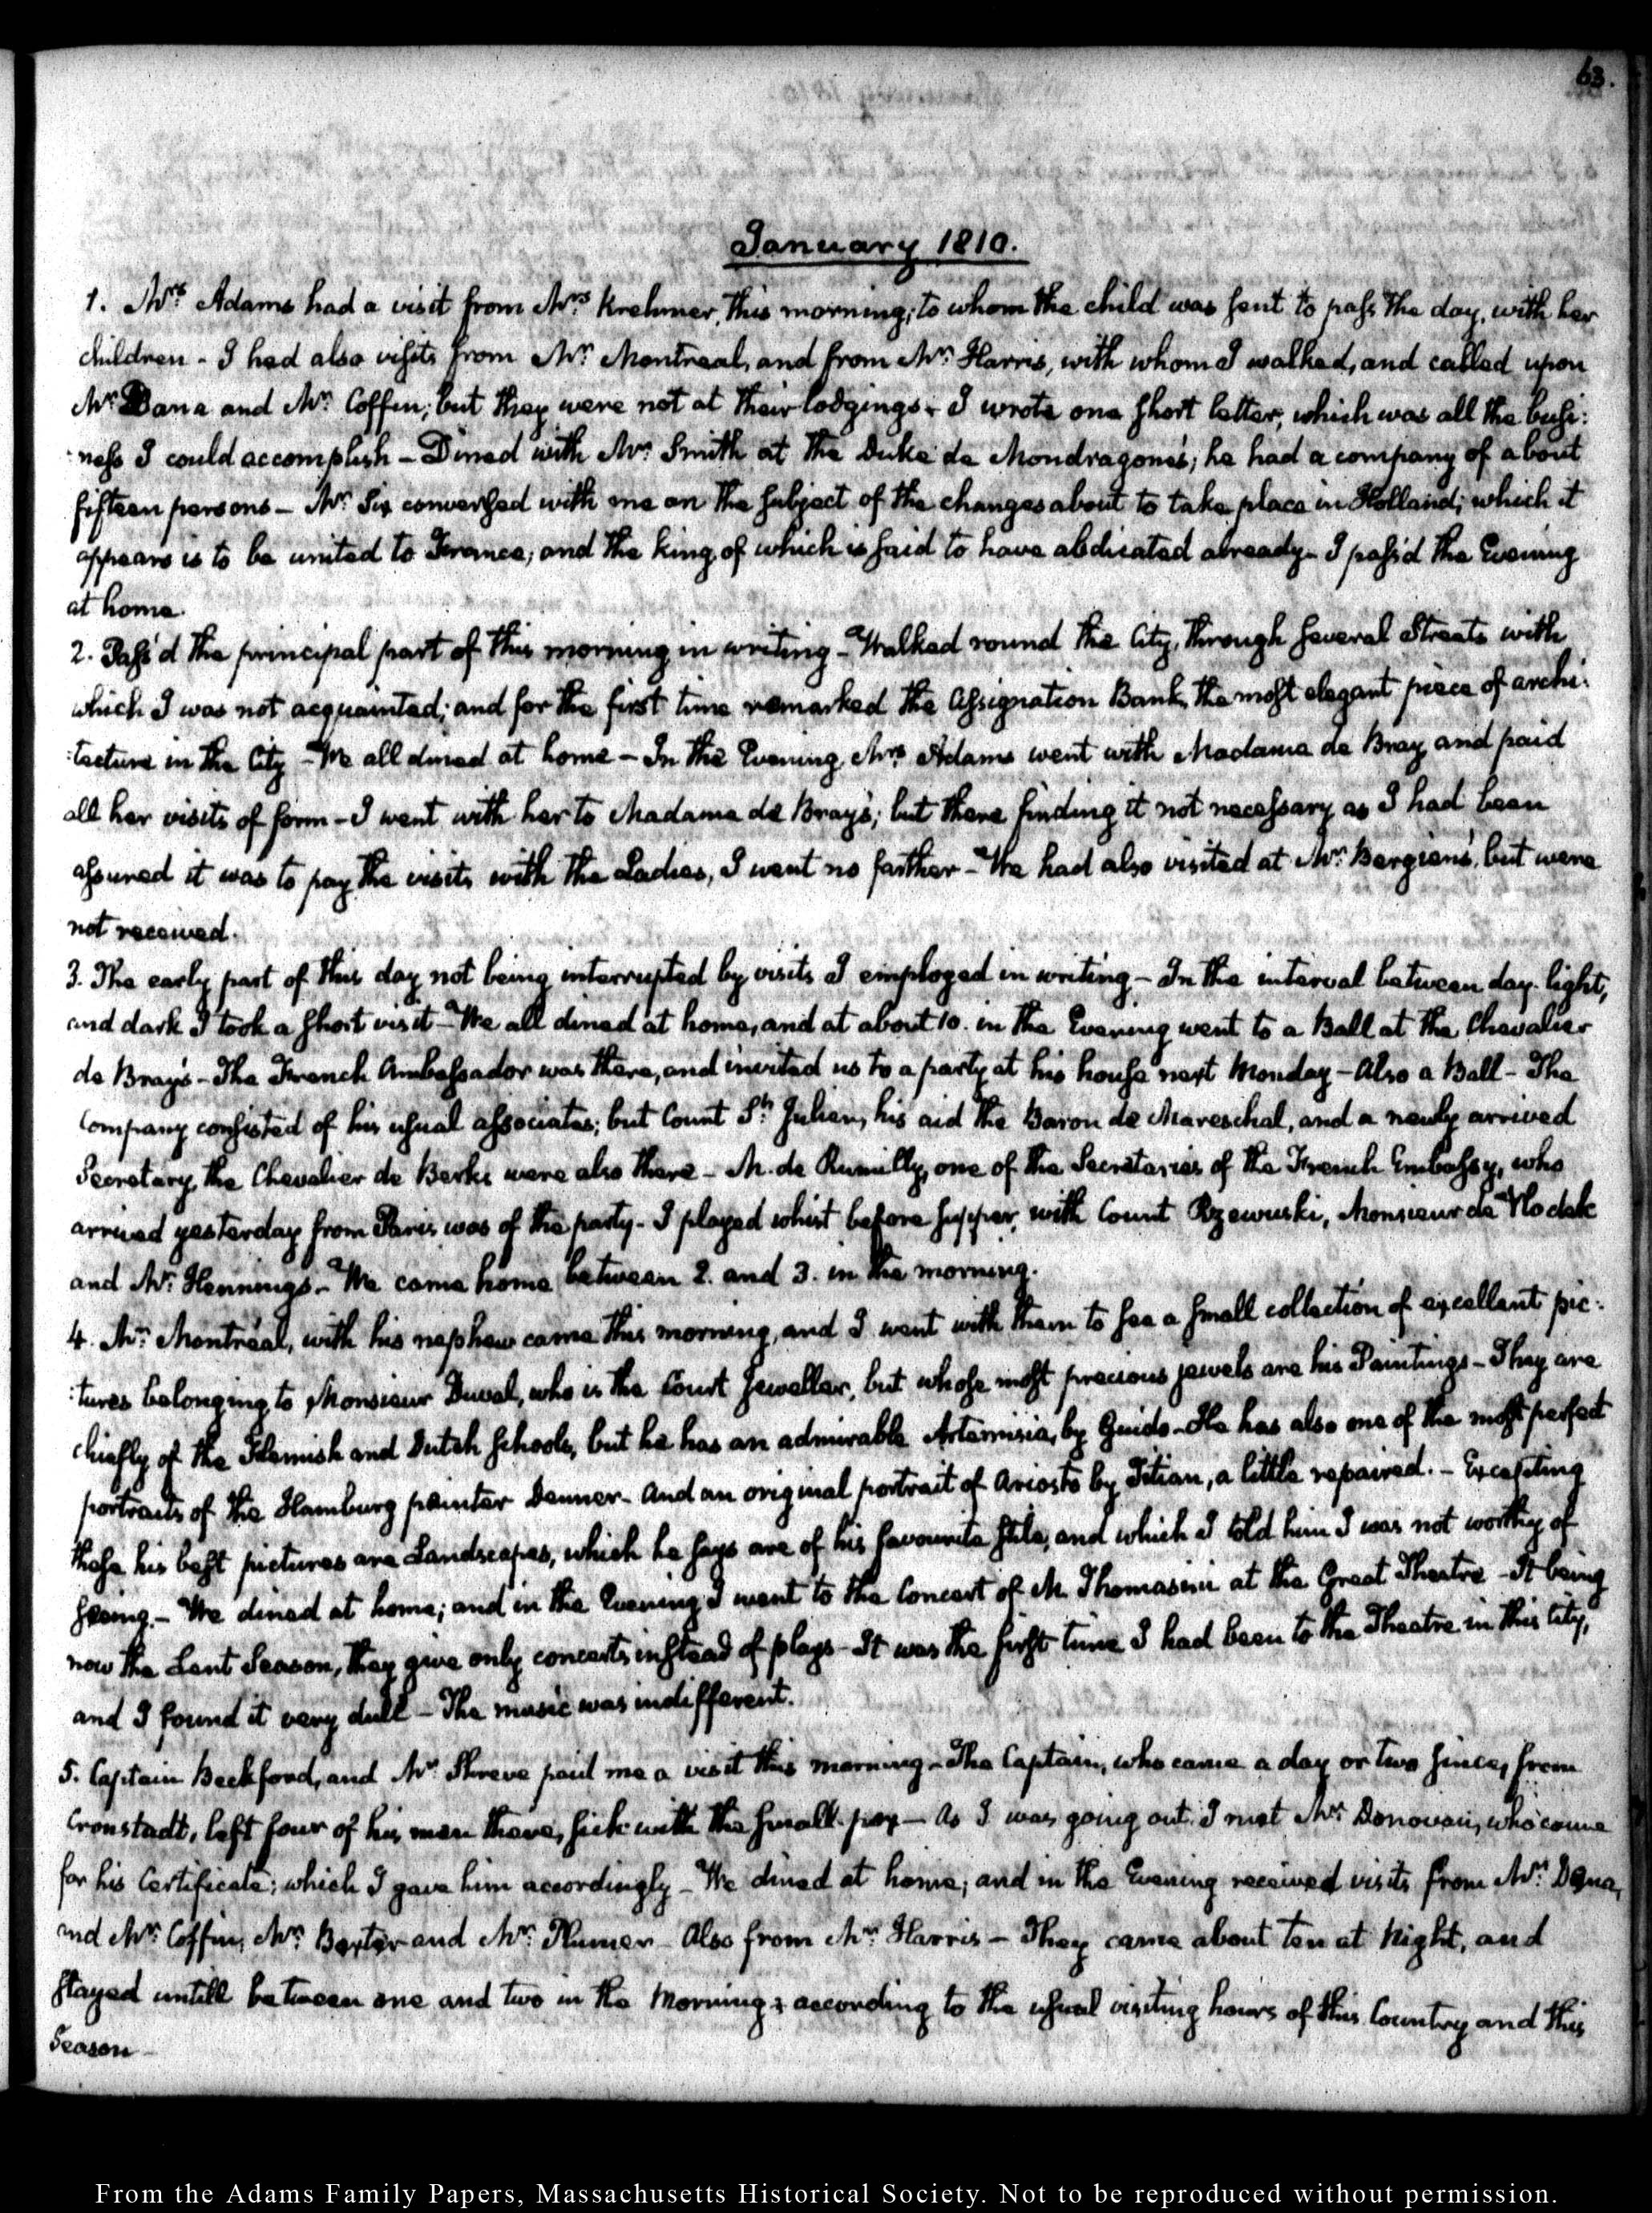 63.
January 1810.
1. Mrs. Adams had a visit from Mrs. Krehmer, this morning; to whom the child was sent to pass the day, with her
children - I had also visits from Mr. Montreal, and from Mr. Harris, with whom I walked, and called upon
Mr. Dana and Mr. Coffin; but they were not at their lodgings - I wrote one short letter, which was all the busi:
:ness I could accomplish - Dined with Mr. Smith at the Duke de Mondragone's; he had a company of about
fifteen persons - Mr. Six conversed with me on the subject of the changes about to take place in Holland; which it
appears is to be united to France; and the king of which is said to have abdicated already - I pass'd the Evening
at home.
2. Pass'd the principal part of this morning in writing - Walked round the City, through several Streets with
which I was not acquainted; and for the first time remarked the Assignation Bank, the most elegant piece of archi:
:tecture in the City - We all dined at home - In the Evening Mrs. Adams went with Madame de Bray and paid
all her visits of form - I went with her to Madame de Bray's; but there finding it not necessary as I had been
assured it was to pay the visits with the Ladies, I went no farther - We had also visited at Mr. Bergien's, but were
not received.
3. The early part of this day not being interrupted by visits I employed in writing - In the interval between day-light,
and dark I took a short visit - We all dined at home, and at about 10. in the Evening went to a Ball at the Chevalier
de Bray's - The French Ambassador was there, and invited us to a party at his house next Monday - Also a Ball - The
Company consisted of his usual associates; but Count St. Julien, his aid the Baron de Mareschal, and a newly arrived
Secretary, the Chevalier de Berks were also there - M. de Rumilly, one of the Secretaries of the French Embassy, who
arrived yesterday from Paris was of the party - I played whist before supper, with Count Rzewuski, Monsieur de Vlodek
and Mr. Hennings - We came home between 2. and 3. in the morning.
4. Mr. Montréal, with his nephew came this morning, and I went with them to see a small collection of excellent pic:
:tures belonging to Monsieur Duval, who is the Court Jeweller, but whose most precious jewels are his Paintings - They are
chiefly of the Flemish and Dutch schools, but he has an admirable Artemisia, by Guido - He has also one of the most perfect
portraits of the Hamburg painter Denner - And an original portrait of Ariosto by Titian, a little repaired. - Excepting
these his best pictures are Landscapes, which he says are of his favourite stile, and which I told him I was not worthy of
seeing - We dined at home; and in the Evening I went to the Concert of M. Thomasini at the Great Theatre - It being
now the Lent Season, they give only concerts instead of plays - It was the first time I had been to the Theatre in this City,
and I found it very dull - The music was indifferent.
5. Captain Beckford, and Mr. Shreve paid me a visit this morning - The Captain, who came a day or two since, from
Cronstadt, left four of his men there, sick with the small-pox - As I was going out I met Mr. Donovan, who came
for his Certificate; which I gave him accordingly - We dined at home; and in the Evening received visits from Mr. Dana,
and Mr. Coffin, Mr. Baxter and Mr. Plumer - Also from Mr. Harris - They came about ten at Night, and
stayed untill between one and two in the Morning; according to the usual visiting hours of this Country and this
Season -
From the Adams Family Papers, Massachusetts Historical Society. Not to be reproduced without permission.